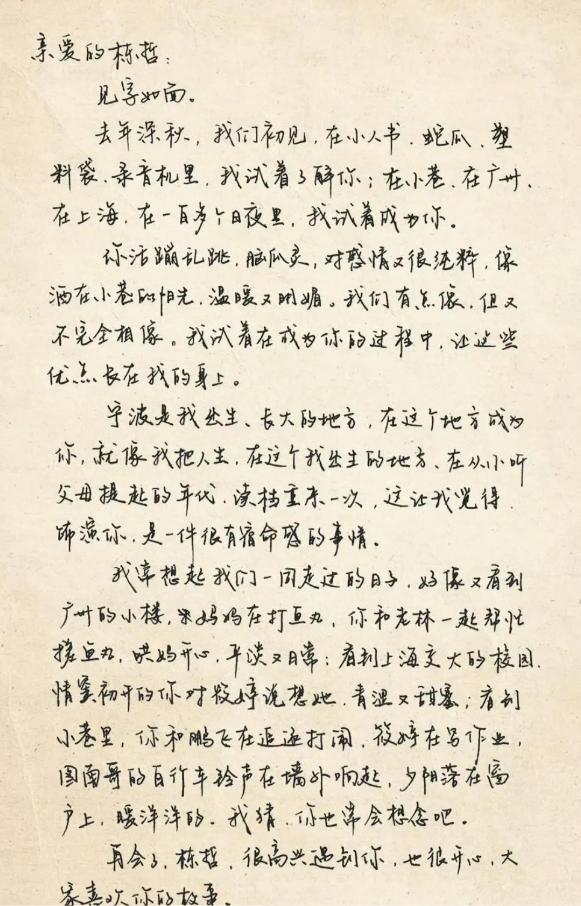 亲爱的栋哲：
见字如面。
去年深秋，我们初见，在小人书、蛇瓜、塑
料袋、录音机里，我试着了解你；在小巷、在广州、
在上海，在一百多个日夜里，我试着成为你。
你活蹦乱跳，脑瓜灵，对感情又很纯粹，像
洒在小巷的阳光，温暖又明媚。我们有点像，但又
不完全相像。我试着在成为你的过程中，让这些
优点长在我的身上。
宁波是我出生、长大的地方，在这个地方成为
你，就像我把人生，在这个我出生的地方、在从小听
父母提起的年代，读档重来一次，这让我觉得，
饰演你，是一件很有宿命感的事情。
我常想起我们一同走过的日子，好像又看到
广州的小楼，宋妈妈在打鱼丸，你和老林一起帮忙
搓鱼丸，哄妈开心，平淡又日常；看到上海交大的校园，
情窦初开的你对筱婷说想她，青涩又甜蜜；看到
小巷里，你和鹏飞在追逐打闹，筱婷在写作业，
图南哥的自行车铃声在墙外响起，夕阳落在窗
户上，暖洋洋的。我猜，你也常会想念吧。
再会了，栋哲，很高兴遇到你，也很开心，大
家喜欢你的故事。